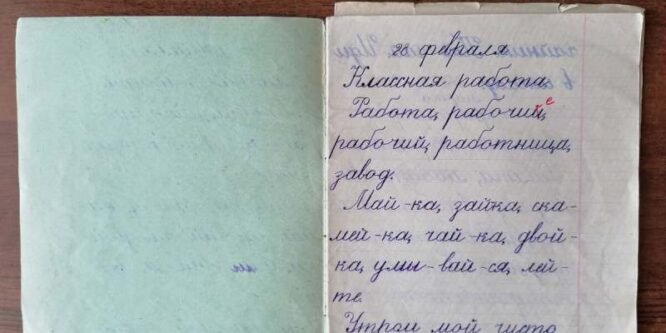 26 февраля
Классная работа
Работа, рабочие,
рабочий, работница,
завод.
Май-ка, зайка, ска-
мей-ка, чай-ка, двой-
ка, умы-вай-ся, лей-
те.
Утром мой